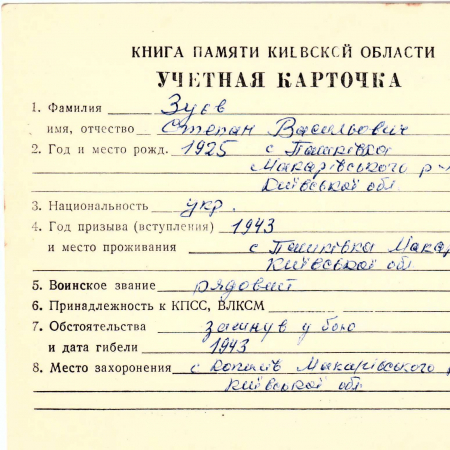 КНИГА ПАМЯТИ КИЕВСКОЙ ОБЛАСТИ
УЧЕТНАЯ КАРТОЧКА
1. Фамилия Зуєв
имя, отчество Степан Васильович
2. Год и место рожд. 1925 с Пашківка
Макарівського р-
Київської обл
3. Национальность укр.
4. Год призыва (вступления) 1943
и место проживания с Пашківка Макар
Київської обл
5. Воинское звание рядовий
6. Принадлежность к КПСС, ВЛКСМ
7. Обстоятельства загинув у бою
и дата гибели 1943
8. Место захоронения с Копилів Макарівського
Київської обл